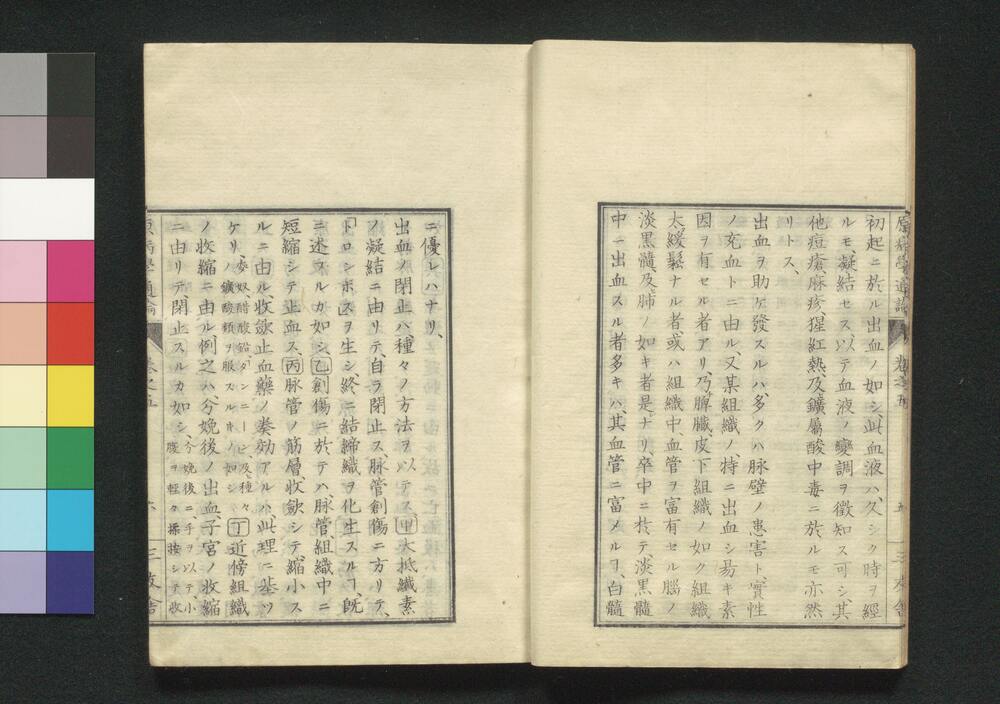 原病學通論 卷之五 五 三友舎
初起ニ於ル出血ノ如シ、此血液ハ、久シク時ヲ經
ルモ、凝結セス、以テ血液ノ變調ヲ徴知ス可シ、其
他痘瘡、麻疹、猩紅熱、及鑛屬酸中毒ニ於ルモ亦然
リトス、
出血ヲ助ケ發スルハ、多クハ脉壁ノ患害ト、實性
ノ充血トニ由ル、又某組織ノ、特ニ出血シ易キ素
因ヲ有セル者アリ、乃脾臟皮下組織ノ如ク組織
太緩鬆ナル者、或ハ組織中、血管ヲ富有セル腦ノ
淡黒髓、及肺ノ如キ者是ナリ、卒中ニ於テ、淡黒髓
中ニ出血スル者多キハ、其血管ニ富メルヲ、白髓
ニ優レハナリ、
出血ノ閉止ハ種々ノ方法ヲ以テス、甲大抵纎素
ノ凝結ニ由リテ、自ラ閉止ス、脉管創傷ニ方リテ、
「トロンボス」ヲ生シ、終ニ結締織ヲ化生スルヿ、既
ニ述フルカ如シ、乙創傷ニ於テハ、脉管、組織中ニ
短縮シテ止血ス、丙脉管ノ筋層收歛シテ、縮小ス
ルニ由ル、收歛止血藥ノ奏効アルハ、此理ニ基ツ
ケリ、麥奴、醋酸鉛、「タンニーン」及種々ノ鑛酸類ヲ服スルキノ如シ丁近傍組織
ノ收縮ニ由ル、例之ハ、分娩後ノ出血、子宮ノ收縮
ニ由リテ、閉止スルカ如シ、分娩後ニ手ヲ以テ、小腹ヲ輕々揉按シテ收
原病學通論 卷之五 六 三友舎